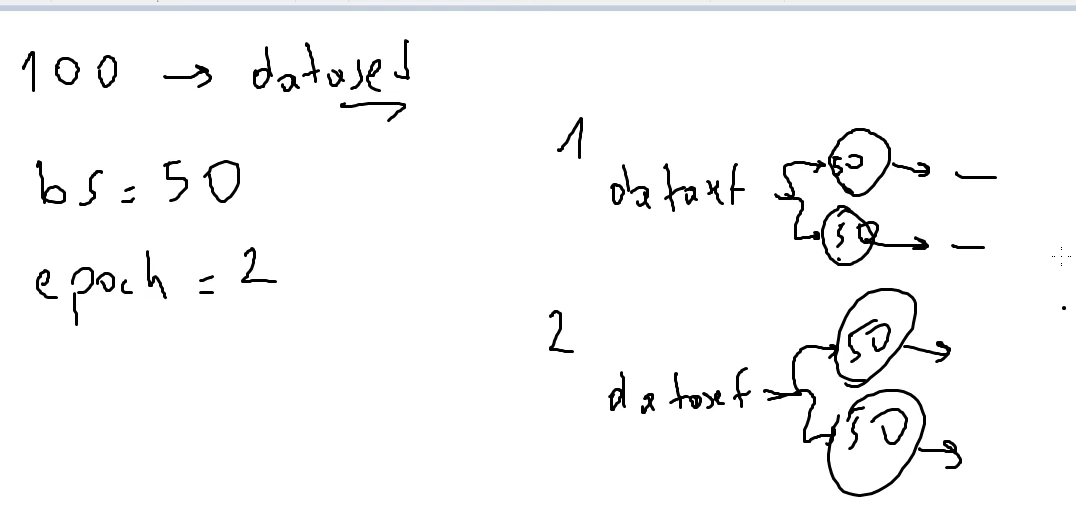 100 → dataset
bs = 50
epoch = 2
1
dataset
50
50
2
dataset
50
50